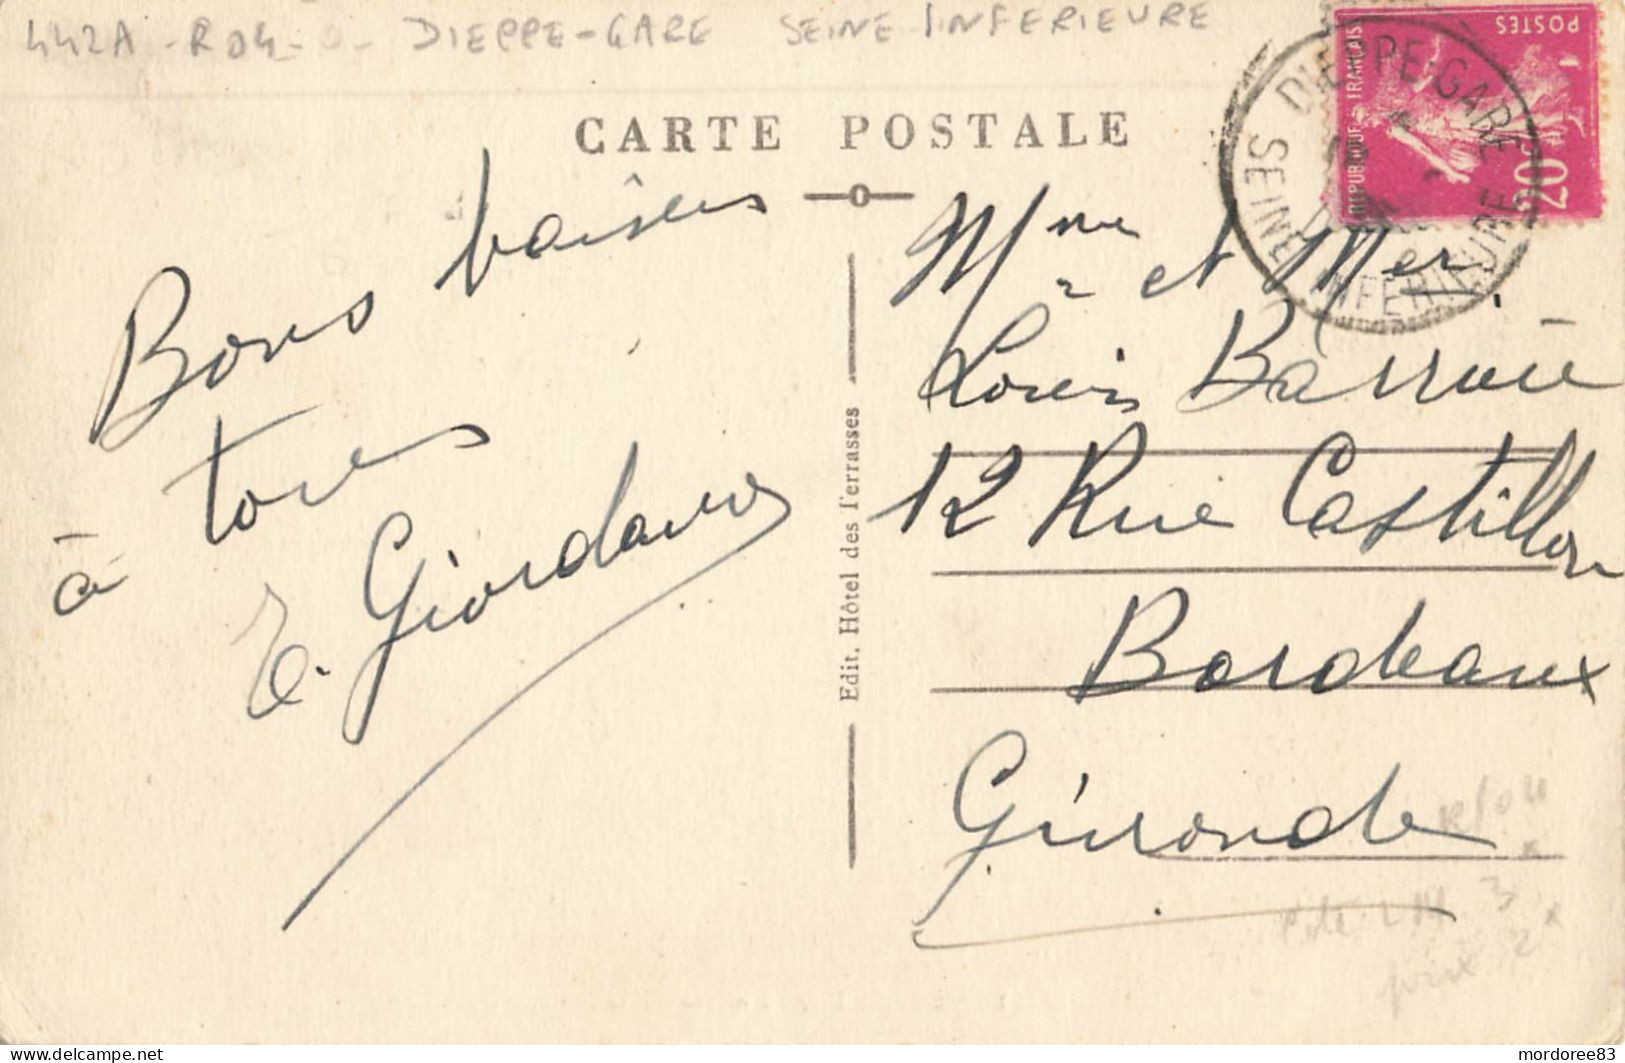 442A - R04 - DIEPPE-GARE SEINE-INFERIEURE
CARTE POSTALE
REPUBLIQUE FRANÇAISE
POSTES
20c
DIEPPE-GARE
SEINE INFÉRIEURE
Bons baisers
à tous
E. Giordano
Edit. Hôtel des Terrasses
Mme et Mr
Louis
12 Rue Castillon
Bordeaux
Gironde
delcampe.net
mordoree83